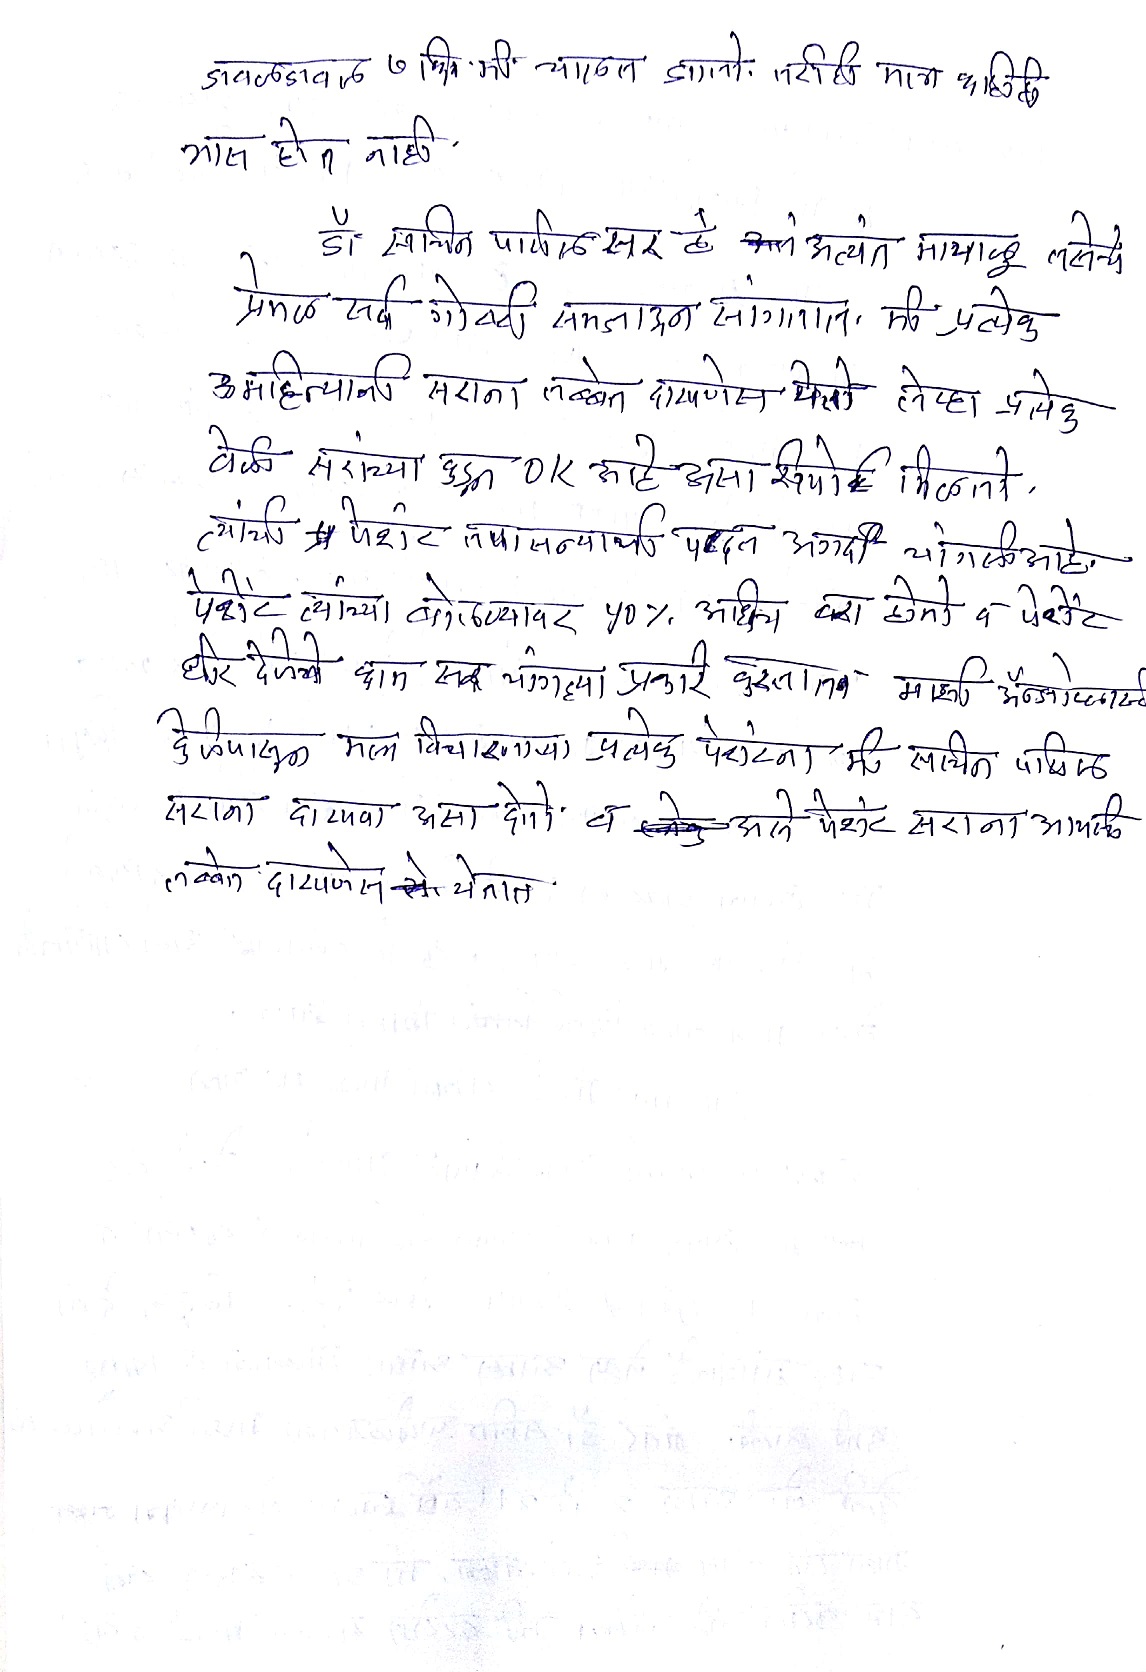 जवळजवळ ७ कि.मी. चालत जातो. तरीही मला काहीही
त्रास होत नाही.
डॉ सचिन पाटील सर हे अत्यंत मायाळू तसेच
प्रेमळ सर्व गोष्टी समजाऊन सांगतात. मी प्रत्येक
३ महिन्यानी सराना तब्बेत दाखवणेस येतो तेव्हा प्रत्येक
वेळी सरांच्या कडून OK आहे असा रिपोर्ट मिळतो.
त्यांची पेशंट तपासन्याची पद्दत अगदी चांगली आहे.
पेशंट त्यांच्या बोलण्यावर ५०% आधीच बरा होतो व पेशंट
धीर देणेचे काम सर चांगल्या प्रकारे करतात. माझी अँन्जोप्लास्टी
केलेपासून मला विचारणाऱ्या प्रत्येक पेशंटना मी सचिन पाटील
सराना दाखवा असा देतो. व असे पेशंट सराना आपली
तब्बेत दाखवणेस येतात.